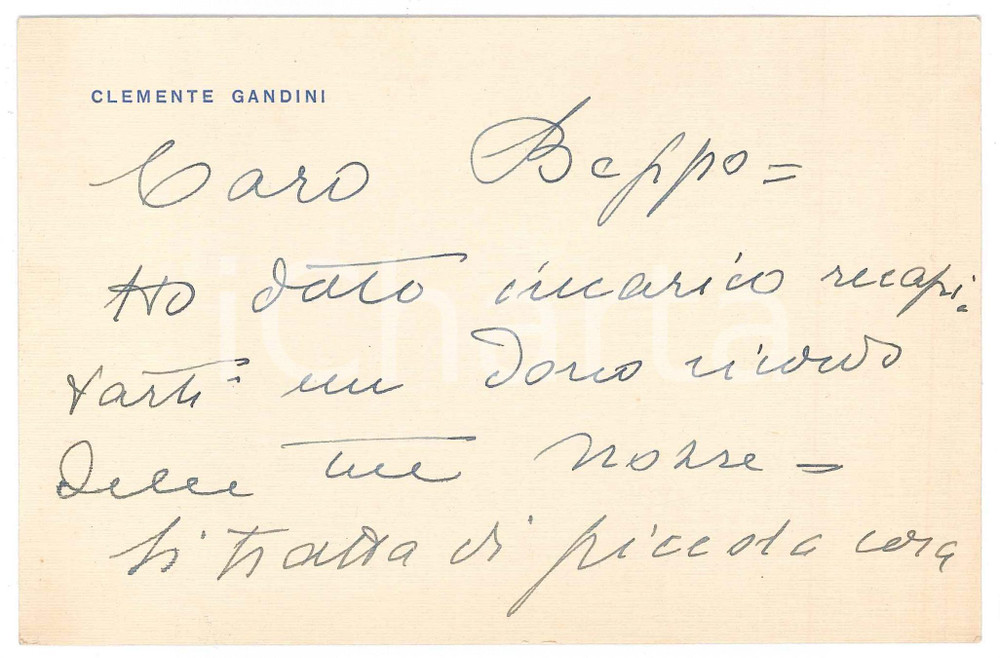 CLEMENTE GANDINI
Caro Beppo =
Ho dato incarico recapi=
tarti un dono ricordo
delle tue nozze =
Si tratta di piccola cosa
iCharta